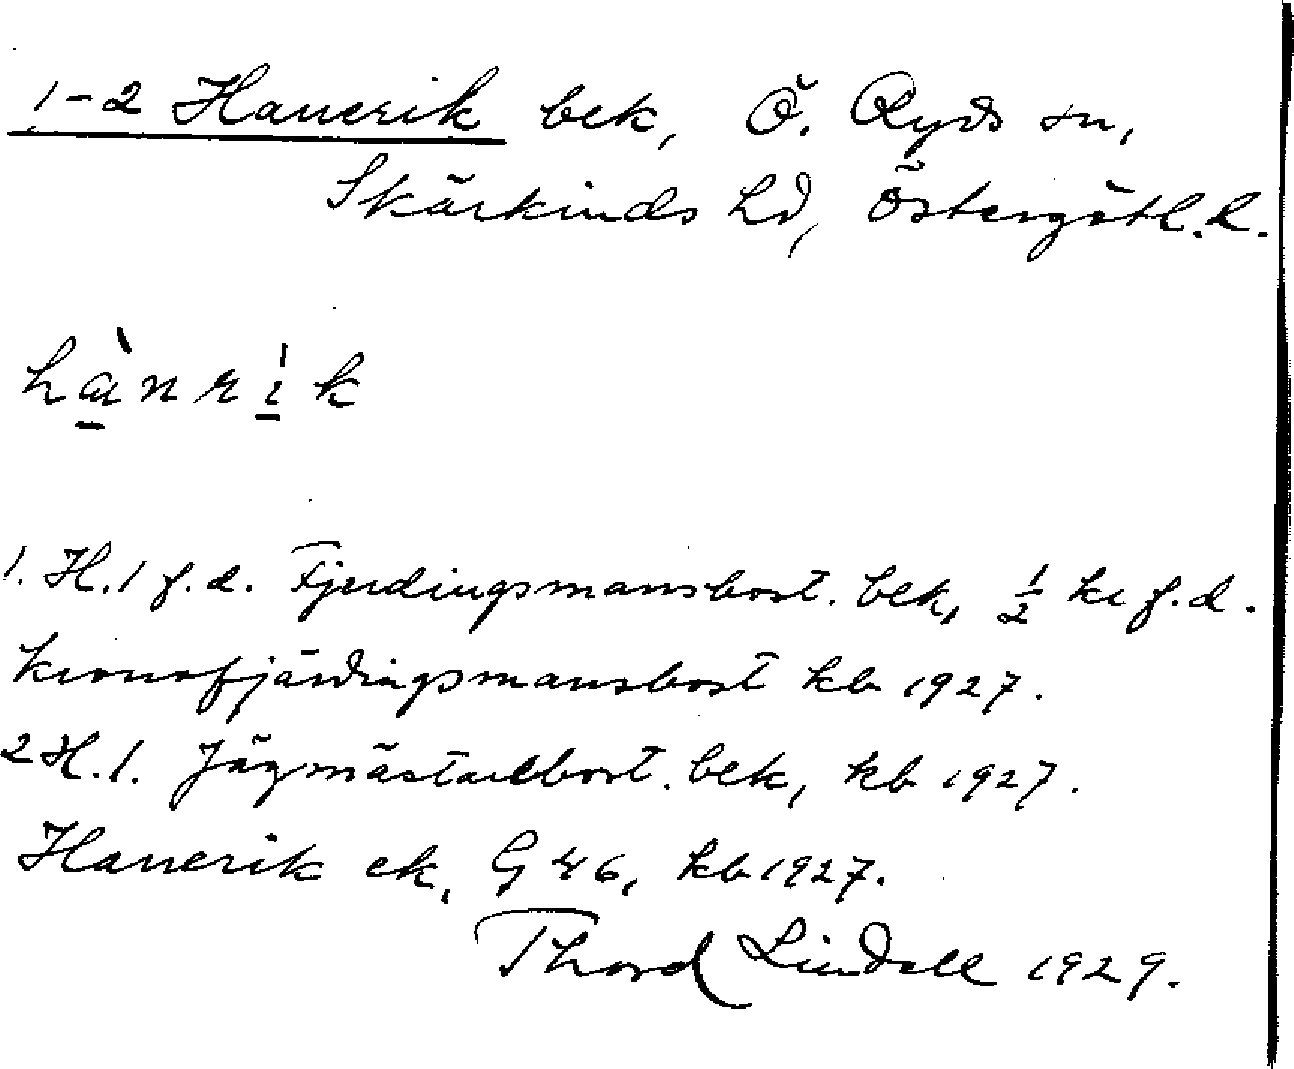 1-2 Hanerik bek, Ö. Ryds sn,
Skärkinds hd, Östergötl. l.
hànrík
1. H. 1 f.d. Fjerdingsmansbost. bek, 1/2 kr f.d.
kronofjärdingsmansbost kb 1927.
2 H. 1. Jägmästarebost. bek, kb 1927.
Hanerik ek, G 46, kb 1927.
Thord Lindell 1929.